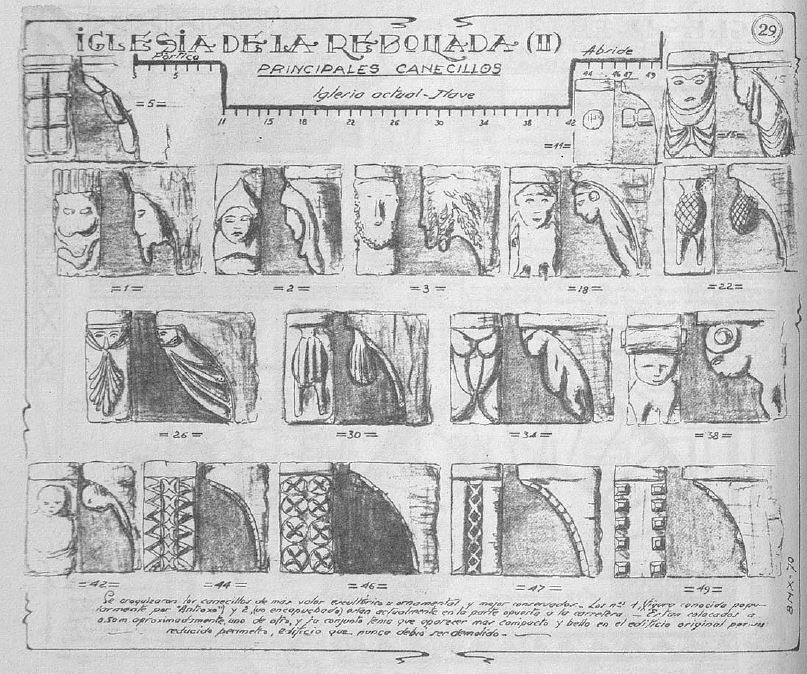 29
IGLESIA DE LA REBOLLADA (II)
Pórtico
Abside
PRINCIPALES CANECILLOS
Iglesia actual - Nave
3 5 11 15 18 22 26 30 34 38 42 44 46 47 49
=5=
=11=
=15=
=1= =2= =3= =18= =22=
=26= =30= =34= =38=
=42= =44= =46= =47= =49=
Se croquizaron los canecillos de mas valor escultórico u ornamental, y mejor conservados.- Los nos 1, (figura conocida popu-
larmente por "Antoxo") y 2, (un encapuchado) están actualmente en la parte opuesta a la carretera. Estan colocados a
0.50m aproximadamente, uno de otro, y su conjunto tenia que aparecer mas compacto y bello en el edificio original por su
reducido perímetro, Edificio que nunca debió ser demolido.-